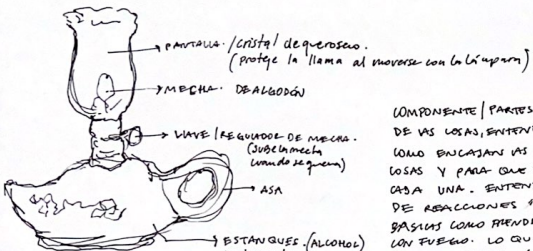 PANTALLA. / cristal de queroseno.
(proteje la llama al moverse con la lámpara)
MECHA. DE ALGODÓN
LLAVE / REGULADOR DE MECHA.
(sube la mecha
cuando se quema)
ASA
ESTANQUES. (ALCOHOL)
COMPONENTE / PARTES
DE LAS COSAS, ENTEN
COMO ENCAJAN LAS
COSAS Y PARA QUE
CADA UNA. ENTEN
DE REACCIONES
BÁSICAS COMO
CON FUEGO. LO QU